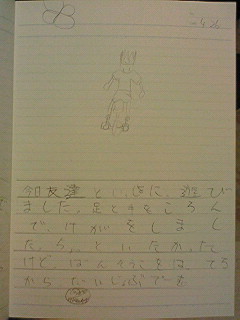 今日友達といっしょに、遊び
ました。足と手をころん
で、けがをしまし
た。といたかった
けど、ばんそうこうをは
から だいじょぶでした